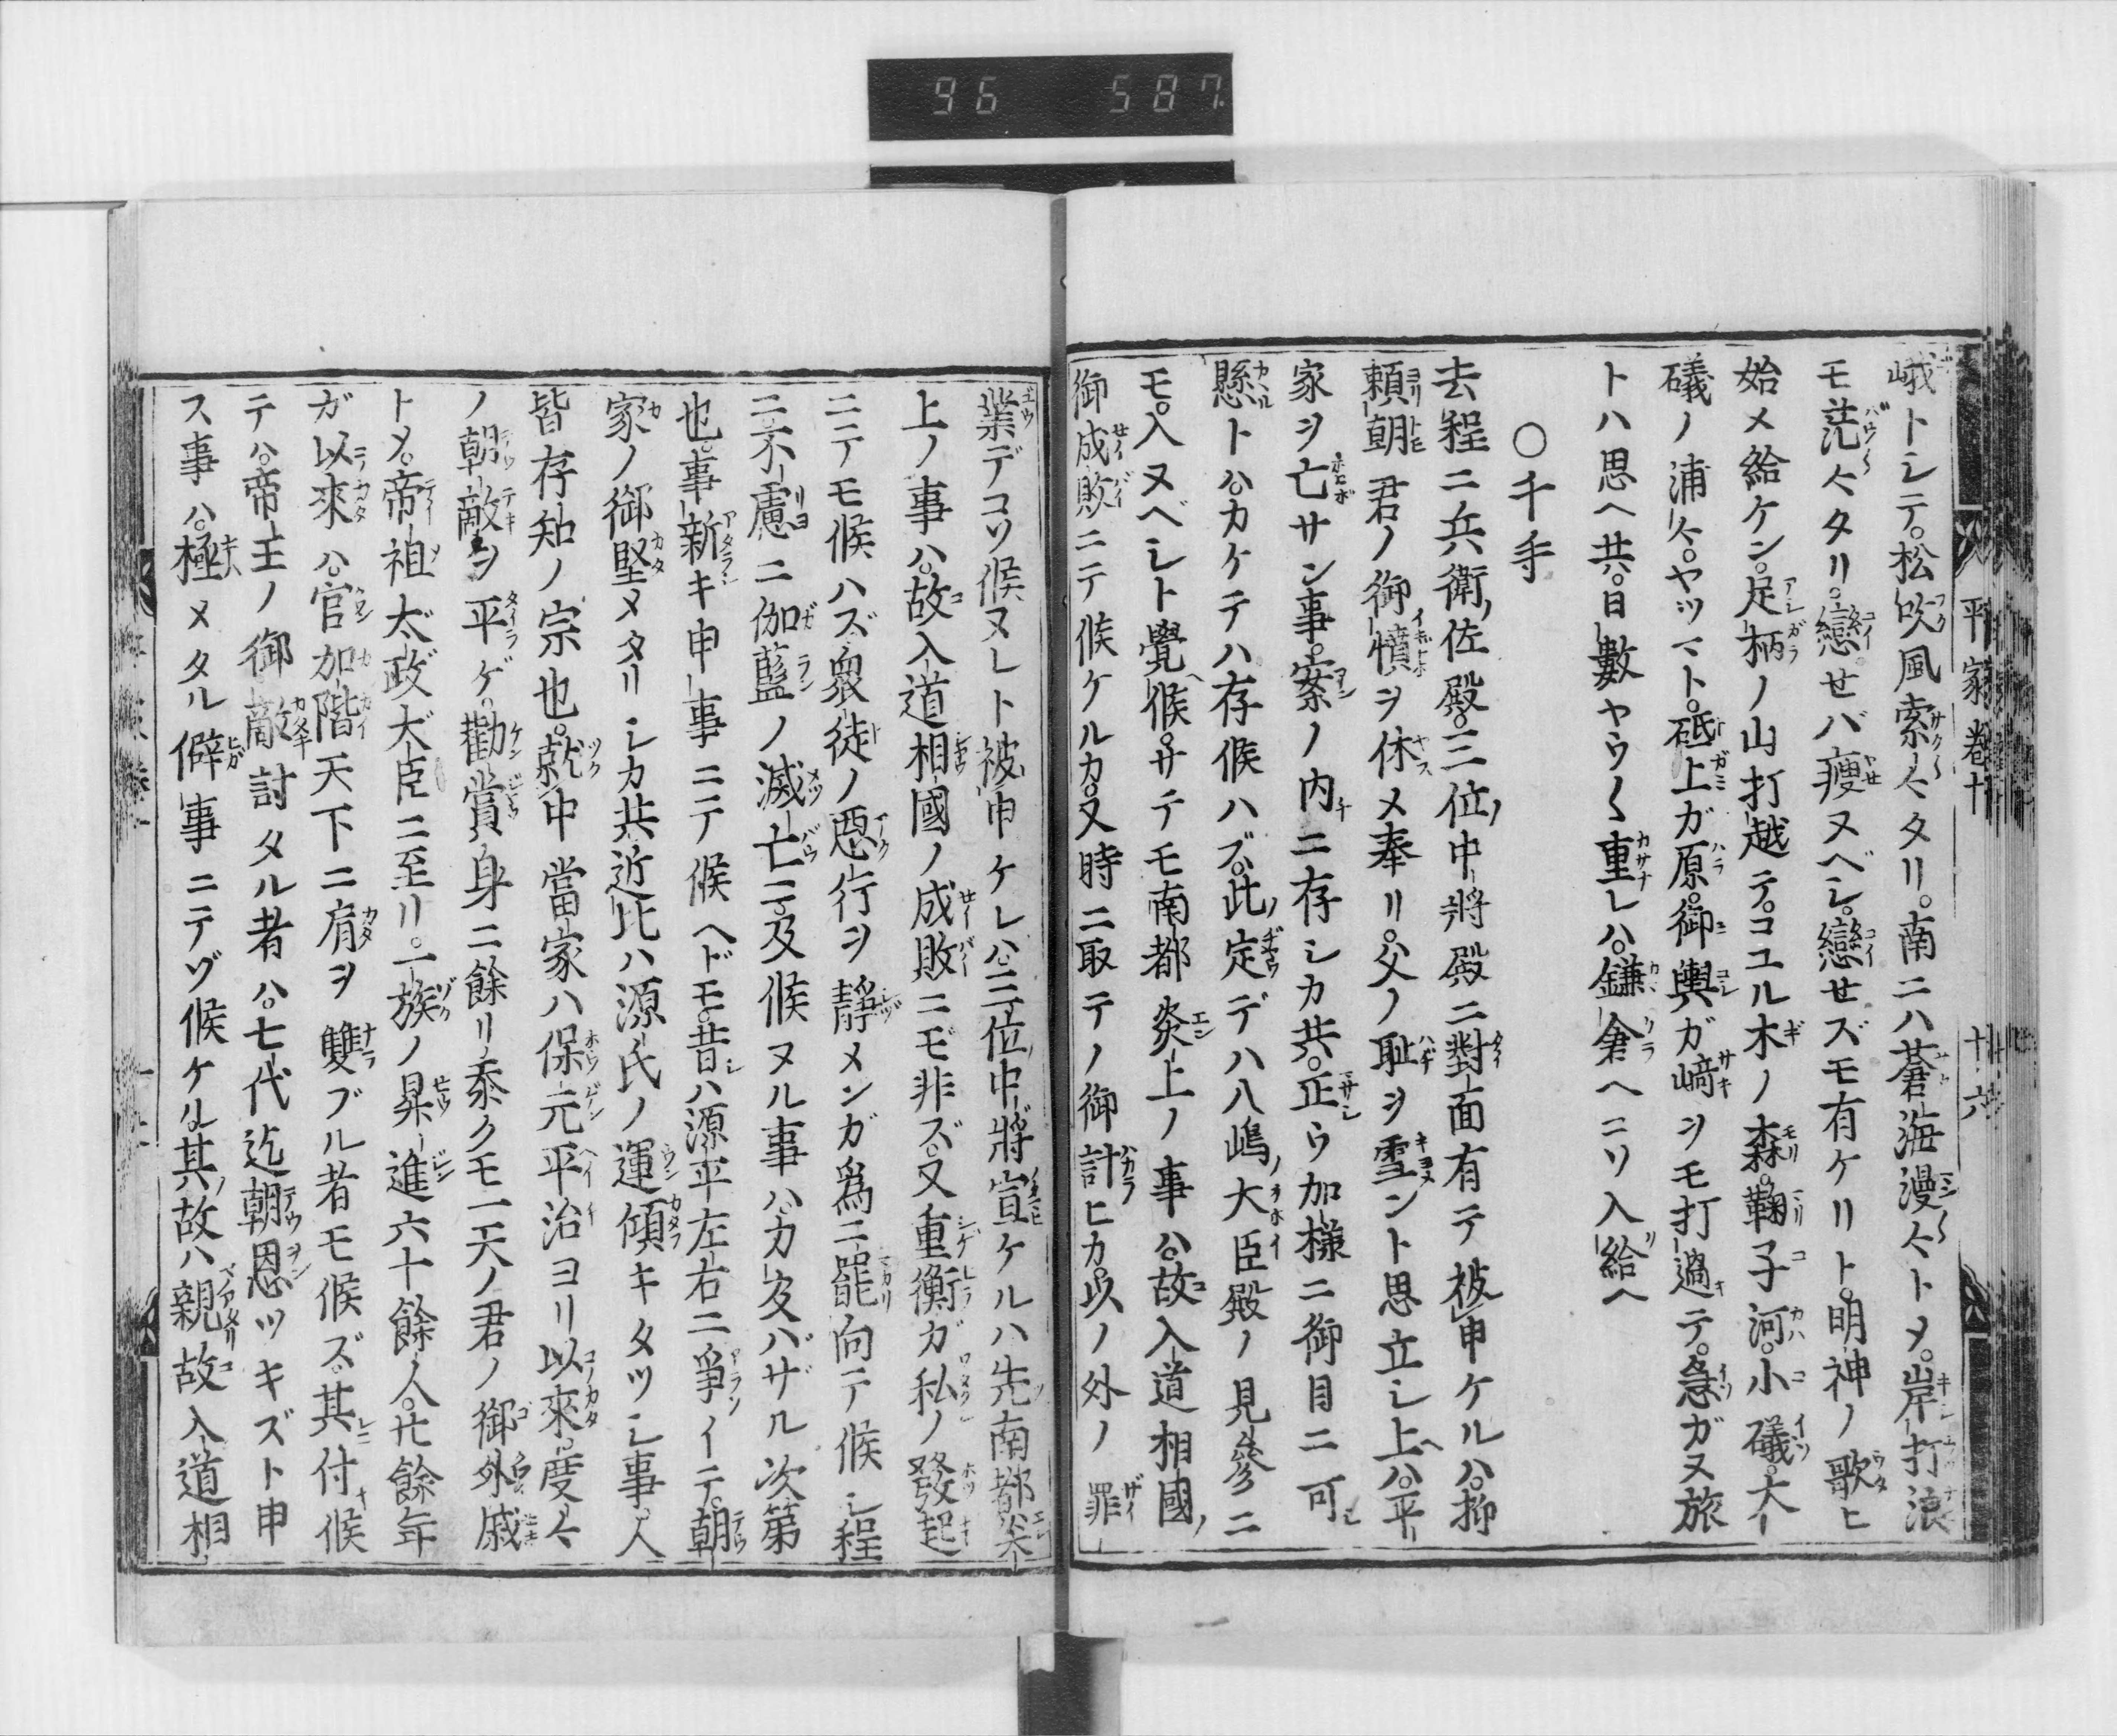 96 587
平家巻十 十六
峨トシテ。松吹風索々タリ。南ニハ蒼海漫々トメ。岸打浪
モ茫々タリ。戀セバ痩ヌベシ。戀セズモ有ケリト。明神ノ歌ヒ
始メ給ケン。足柄ノ山打越テ。コユル木ノ森。鞠子河。小礒。大
礒ノ浦々。ヤツマト。砥上ガ原。御輿ガ﨑ヲモ打過テ。急ガヌ旅
トハ思ヘ共。日數ヤウ〱重レハ。鎌倉ヘコソ入給ヘ
〇千手
去程ニ兵衛佐殿。三位中將殿ニ對面有テ被申ケルハ。抑
頼朝君ノ御憤ヲ休メ奉リ。父ノ耻ヲ雪ント思立シ上ハ。平
家ヲ亡サン事。案ノ内ニ存シカ共。正ウ加様ニ御目ニ可
懸トハ。カケテハ存候ハズ。此定デハ八嶋ノ大臣殿ノ見參ニ
モ。入ヌベシト覺候。サテモ南都炎上ノ事ハ。故入道相國ノ
御成敗ニテ候ケルカ。又時ニ取テノ御計ヒカ。以ノ外ノ罪
業デコソ候ヌレト被申ケレハ。三位中將宣ケルハ先南都炎
上ノ事ハ。故入道相國ノ成敗ニモ非ズ。又重衡ガ私ノ發起
ニテモ候ハズ。衆徒ノ惡行ヲ靜メンガ爲ニ罷向テ候シ程
ニ。不慮ニ伽藍ノ滅亡ニ及候ヌル事ハ。力及バザル次第
也。事新キ申事ニテ候ヘドモ。昔ハ源平左右ニ爭イテ。朝
家ノ御堅メタリシカ共近比ハ源氏ノ運傾キタツシ事。人
皆存知ノ宗也。就中當家ハ保元平治ヨリ以來。度々
ノ朝敵ヲ平ゲ。勸賞身ニ餘リ。忝クモ一天ノ君ノ御外戚
トメ。帝祖太政大臣ニ至リ。一族ノ昇進六十餘人。廿餘年
ガ以來ハ。官加階天下ニ肩ヲ雙ブル者モ候ズ。其付候
テハ。帝王ノ御敵討タル者ハ。七代迄朝恩ツキズト申
ス事ハ。極メタル僻事ニテゾ候ケル。其故ハ親故入道相